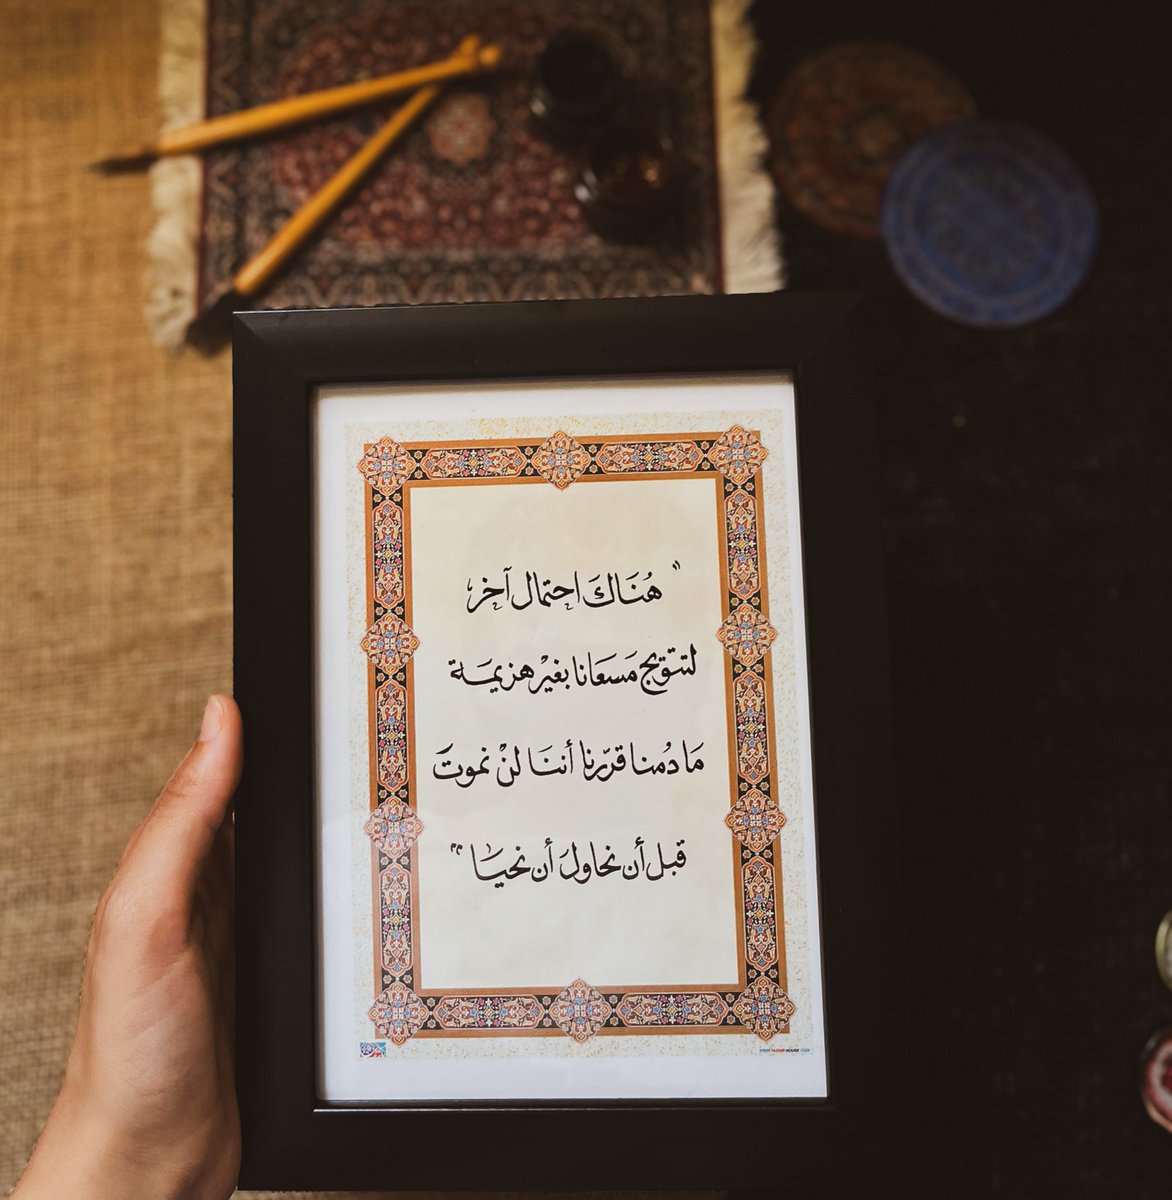 " هُنَاكَ احتمال آخر
لتتويج مَسعَانا بغيْر هزيمَة
مَا دُمنا قرّرنا أننَا لنْ نموتَ
قبل أن نحاولَ أن نحيَا "